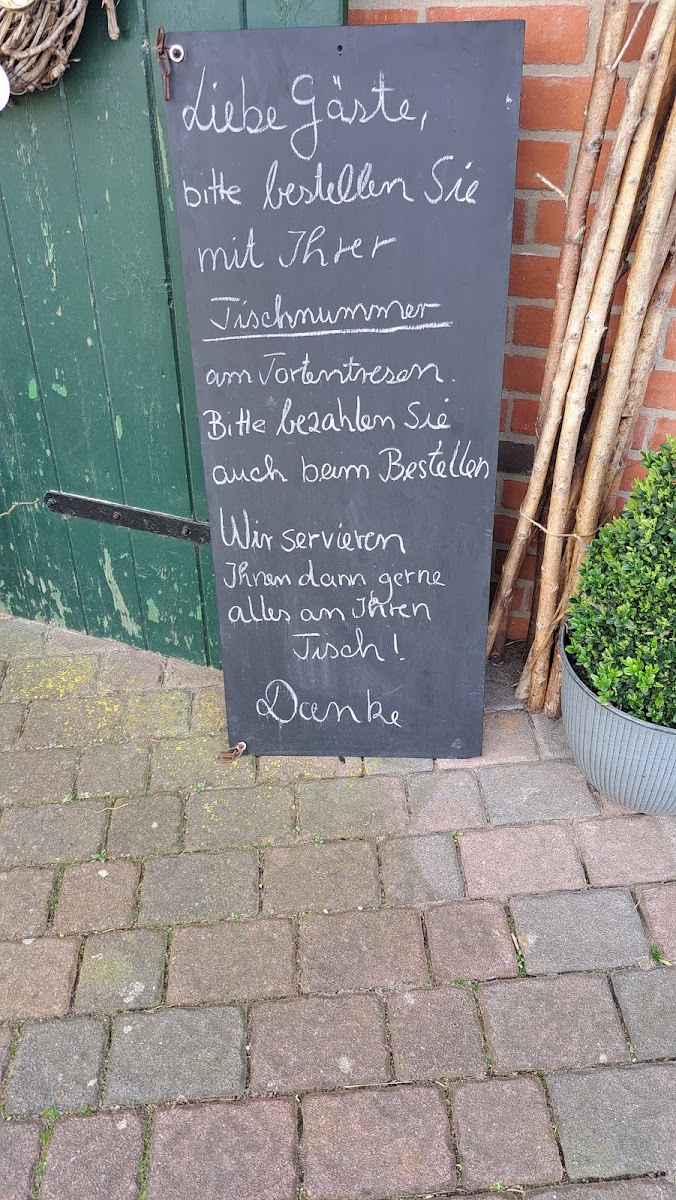 Liebe Gäste,
bitte bestellen Sie
mit Ihrer
Tischnummer
am Tortentresen.
Bitte bezahlen Sie
auch beim Bestellen
Wir servieren
Ihnen dann gerne
alles an Ihren
Tisch!
Danke